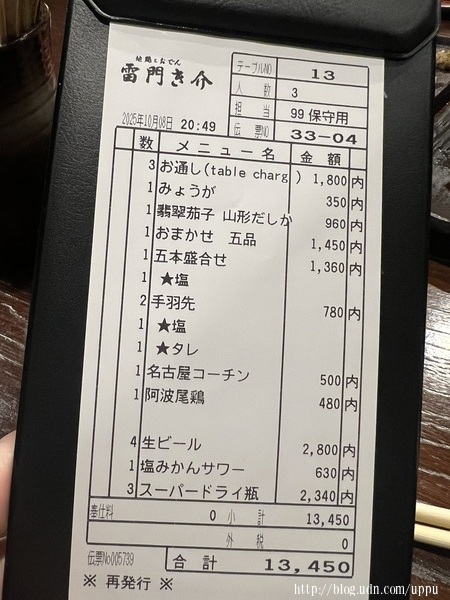 地鶏とおでん
雷門き介
テーブルNO 13
人 数 3
担 当 99 保守用
2025年10月08日 20:49 伝 票NO 33-04
数 メニュー名 金 額
3 お通し(table charg ) 1,800 内
1 みょうが 350 内
1 翡翠茄子 山形だしか 960 内
1 おまかせ 五品 1,450 内
1 五本盛合せ 1,360 内
1 ★塩
2 手羽先 780 内
1 ★塩
1 ★タレ
1 名古屋コーチン 500 内
1 阿波尾鶏 480 内
4 生ビール 2,800 内
1 塩みかんサワー 630 内
3 スーパードライ瓶 2,340 内
奉仕料 0 小 計 13,450
外 税 0
伝票No005739 合 計 13,450
※ 再発行 ※
http://blog.udn.com/uppu